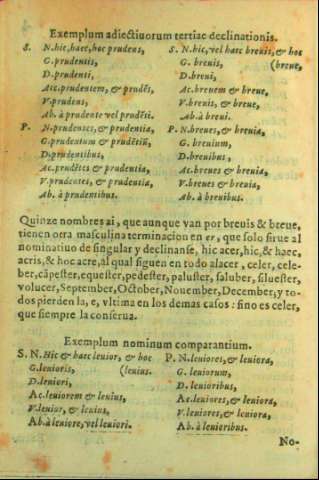 Exemplum adiectiuorum tertiae declinationis.
S. N. hic, haec, hoc prudens,
G. prudentis,
D. prudenti,
Acc. prudentem, & prudẽs,
V. prudens,
Ab. à prudente vel prudẽti.
P. N. prudentes, & prudentia,
G. prudentum & prudẽtiũ,
D. prudentibus,
Ac. prudẽtes & prudentia,
V. prudentes, & prudentia,
Ab. à prudentibus.
S. N. hic, vel haec breuis, & hoc
G. breuis, (breue,
D. breui,
Ac. breuem & breue,
V. breuis, & breue,
Ab. à breui.
P. N. breues, & breuia,
G. breuium,
D. breuibus,
Ac. breues & breuia,
V. breues & breuia,
Ab. à breuibus.
Quinze nombres ai, que aunque van por breuis & breue,
tienen otra masculina terminacion en er, que solo sirue al
nominatiuo de singular y declinanse, hic acer, hic, & haec,
acris, & hoc acre, al qual siguen en todo alacer, celer, cele-
ber, cãpester, equester, pedester, paluster, saluber, siluester,
volucer, September, October, Nouember, December, y to-
dos pierden la, e, vltima en los demas casos: sino es celer,
que siempre la conserua.
Exemplum nominum comparantium.
S. N. Hic & haec leuior, & hoc
G. leuioris, (leuius.
D. leuiori,
Ac. leuiorem & leuius,
V. leuior, & leuius,
Ab. à leuiore, vel leuiori.
P. N. leuiores, & leuiora,
G. leuiorum,
D. leuioribus,
Ac. leuiores, & leuiora,
V. leuiores, & leuiora,
Ab. à leuioribus.
No-